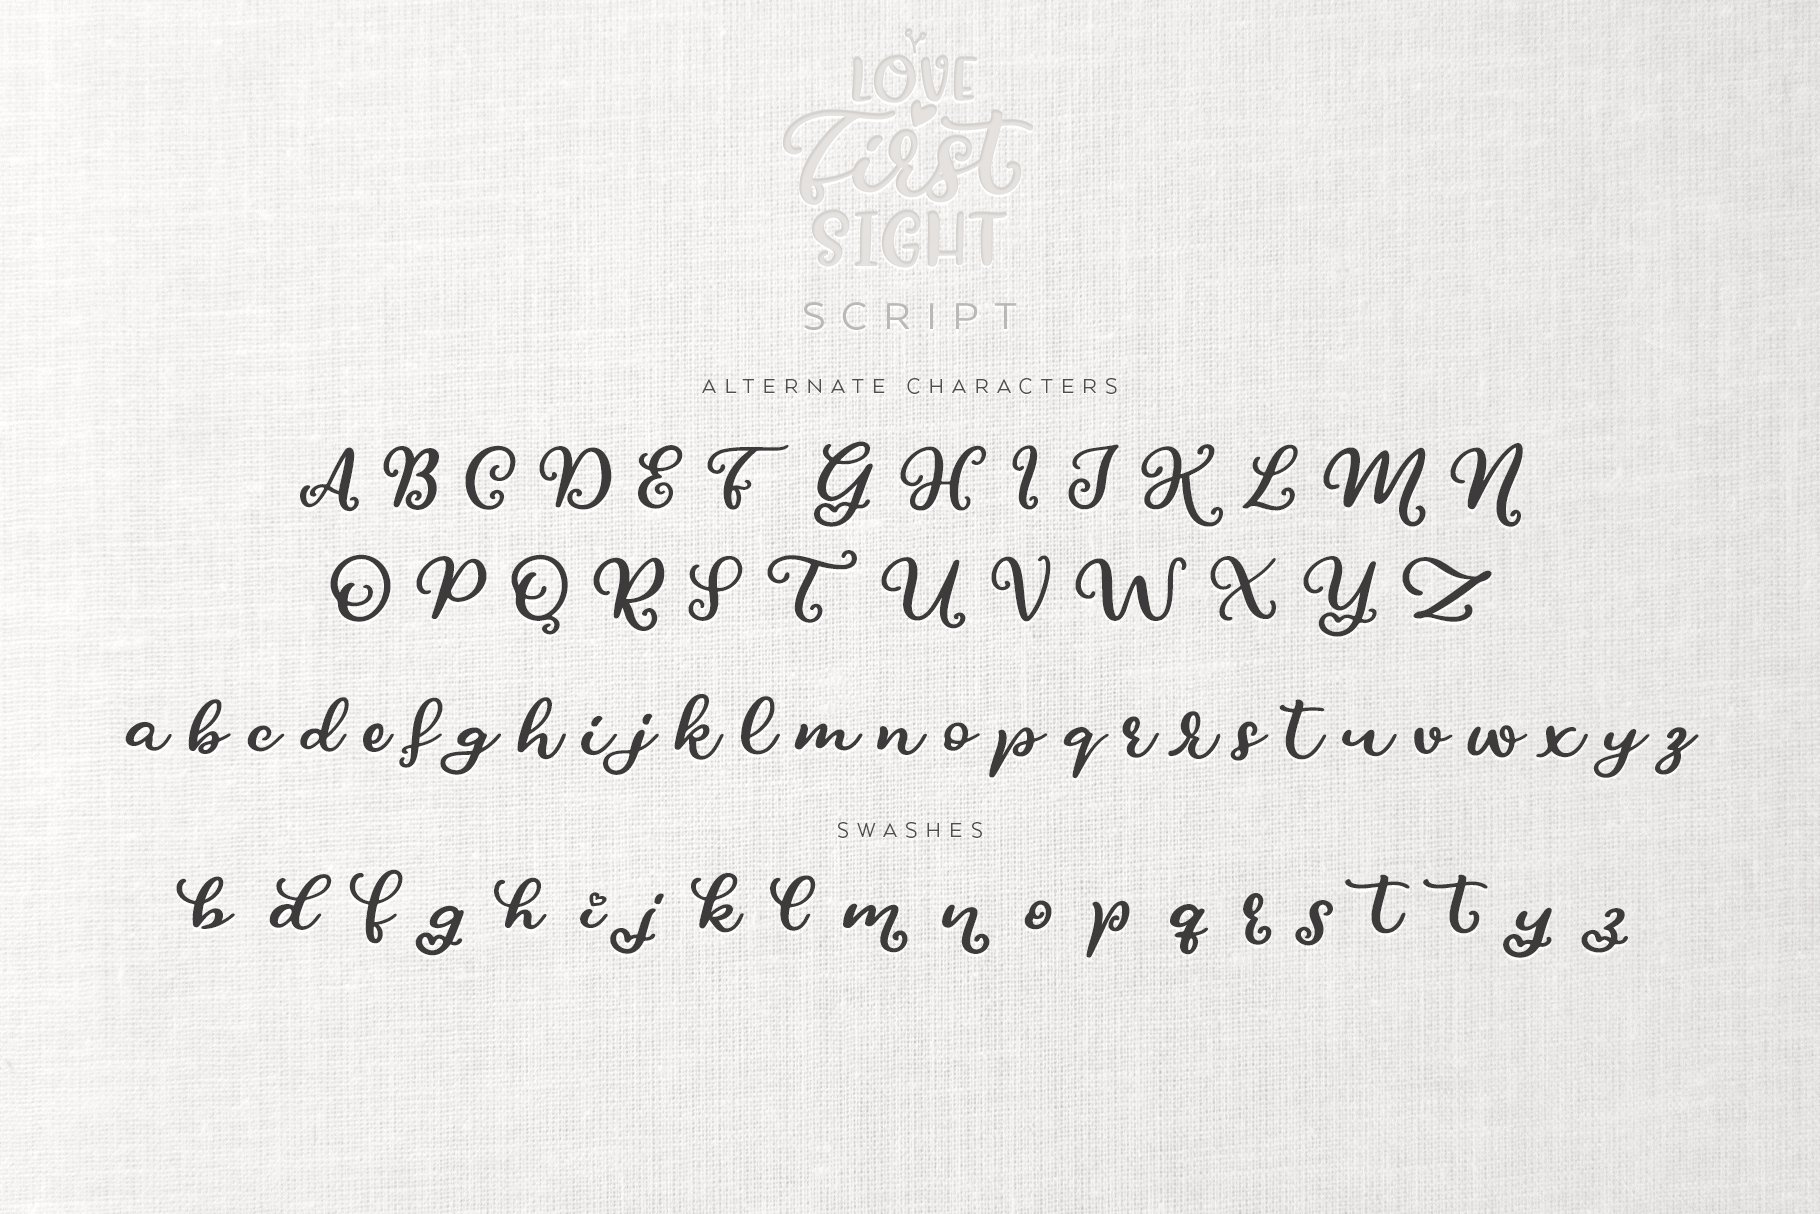 LOVE
First
SIGHT
SCRIPT
ALTERNATE CHARACTERS
A B C D E F G H I J K L M N
O P Q R S T U V W X Y Z
a b c d e f g h i j k l m n o p q r r s t u v w x y z
SWASHES
b d f g h i j k l m n o p q r s t t y z